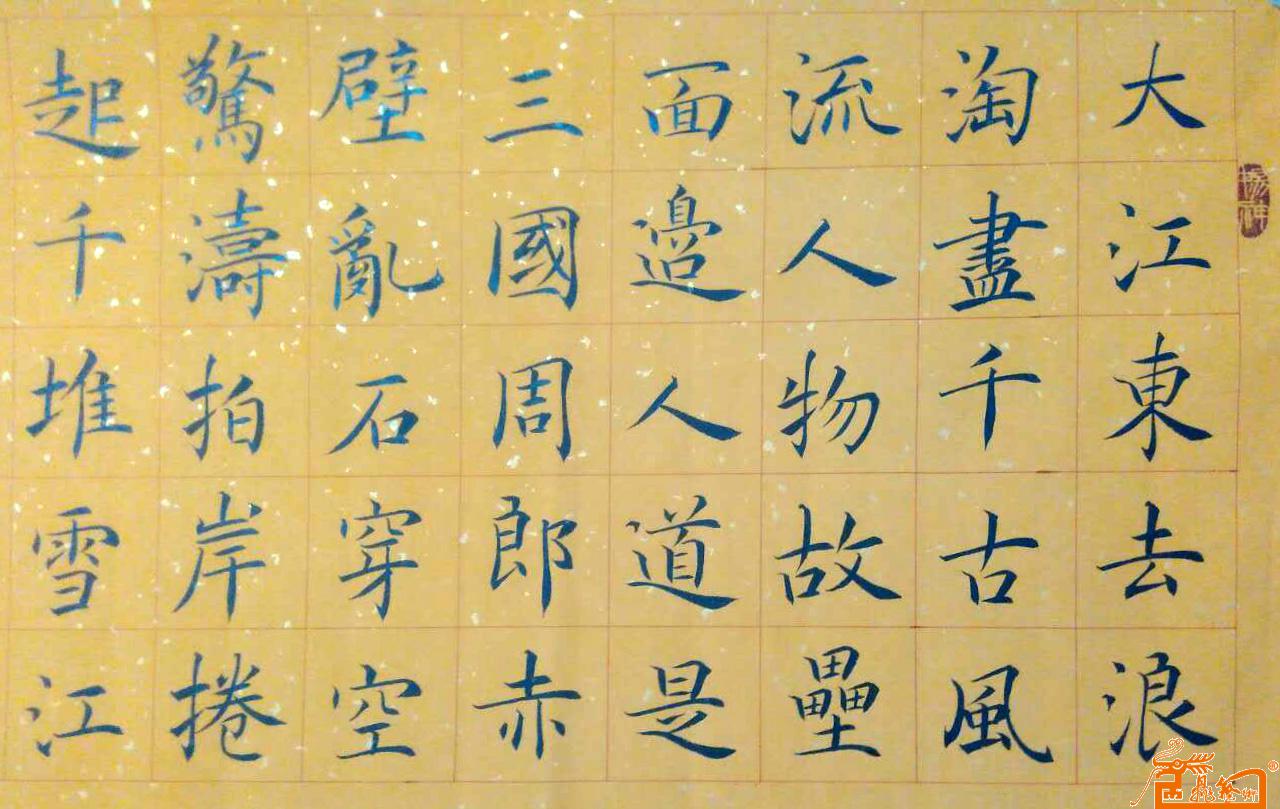 大江東去浪
淘盡千古風
流人物故壘
面邉人道是
三國周郎赤
壁亂石穿空
驚濤拍岸捲
起千堆雪江